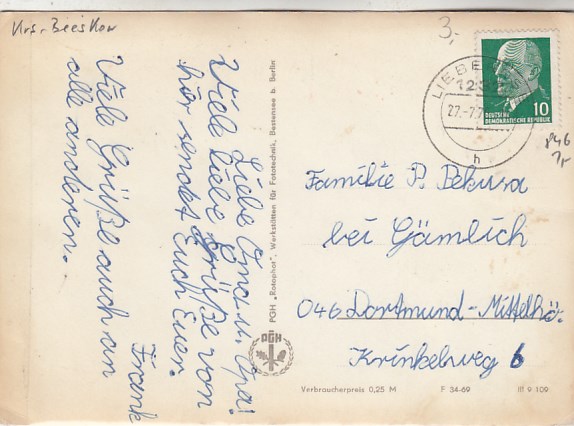 Krs. Beeskow
3,-
Liebe Oma u. Opa!
Viele liebe Grüße von
hier sendet Euch Euer
Frank
Viele Grüße auch an
alle anderen.
PGH „Rotophot", Werkstätten für Fototechnik, Bestensee b. Berlin
PGH
LIEBE
27.-7.7
h
10
DEUTSCHE
DEMOKRATISCHE REPUBLIK
Familie P. Bekusa
bei Gämlich
046 Dortmund-Mittelhö.
Krinkelweg 6
Verbraucherpreis 0,25 M
F 34-69
III 9 109